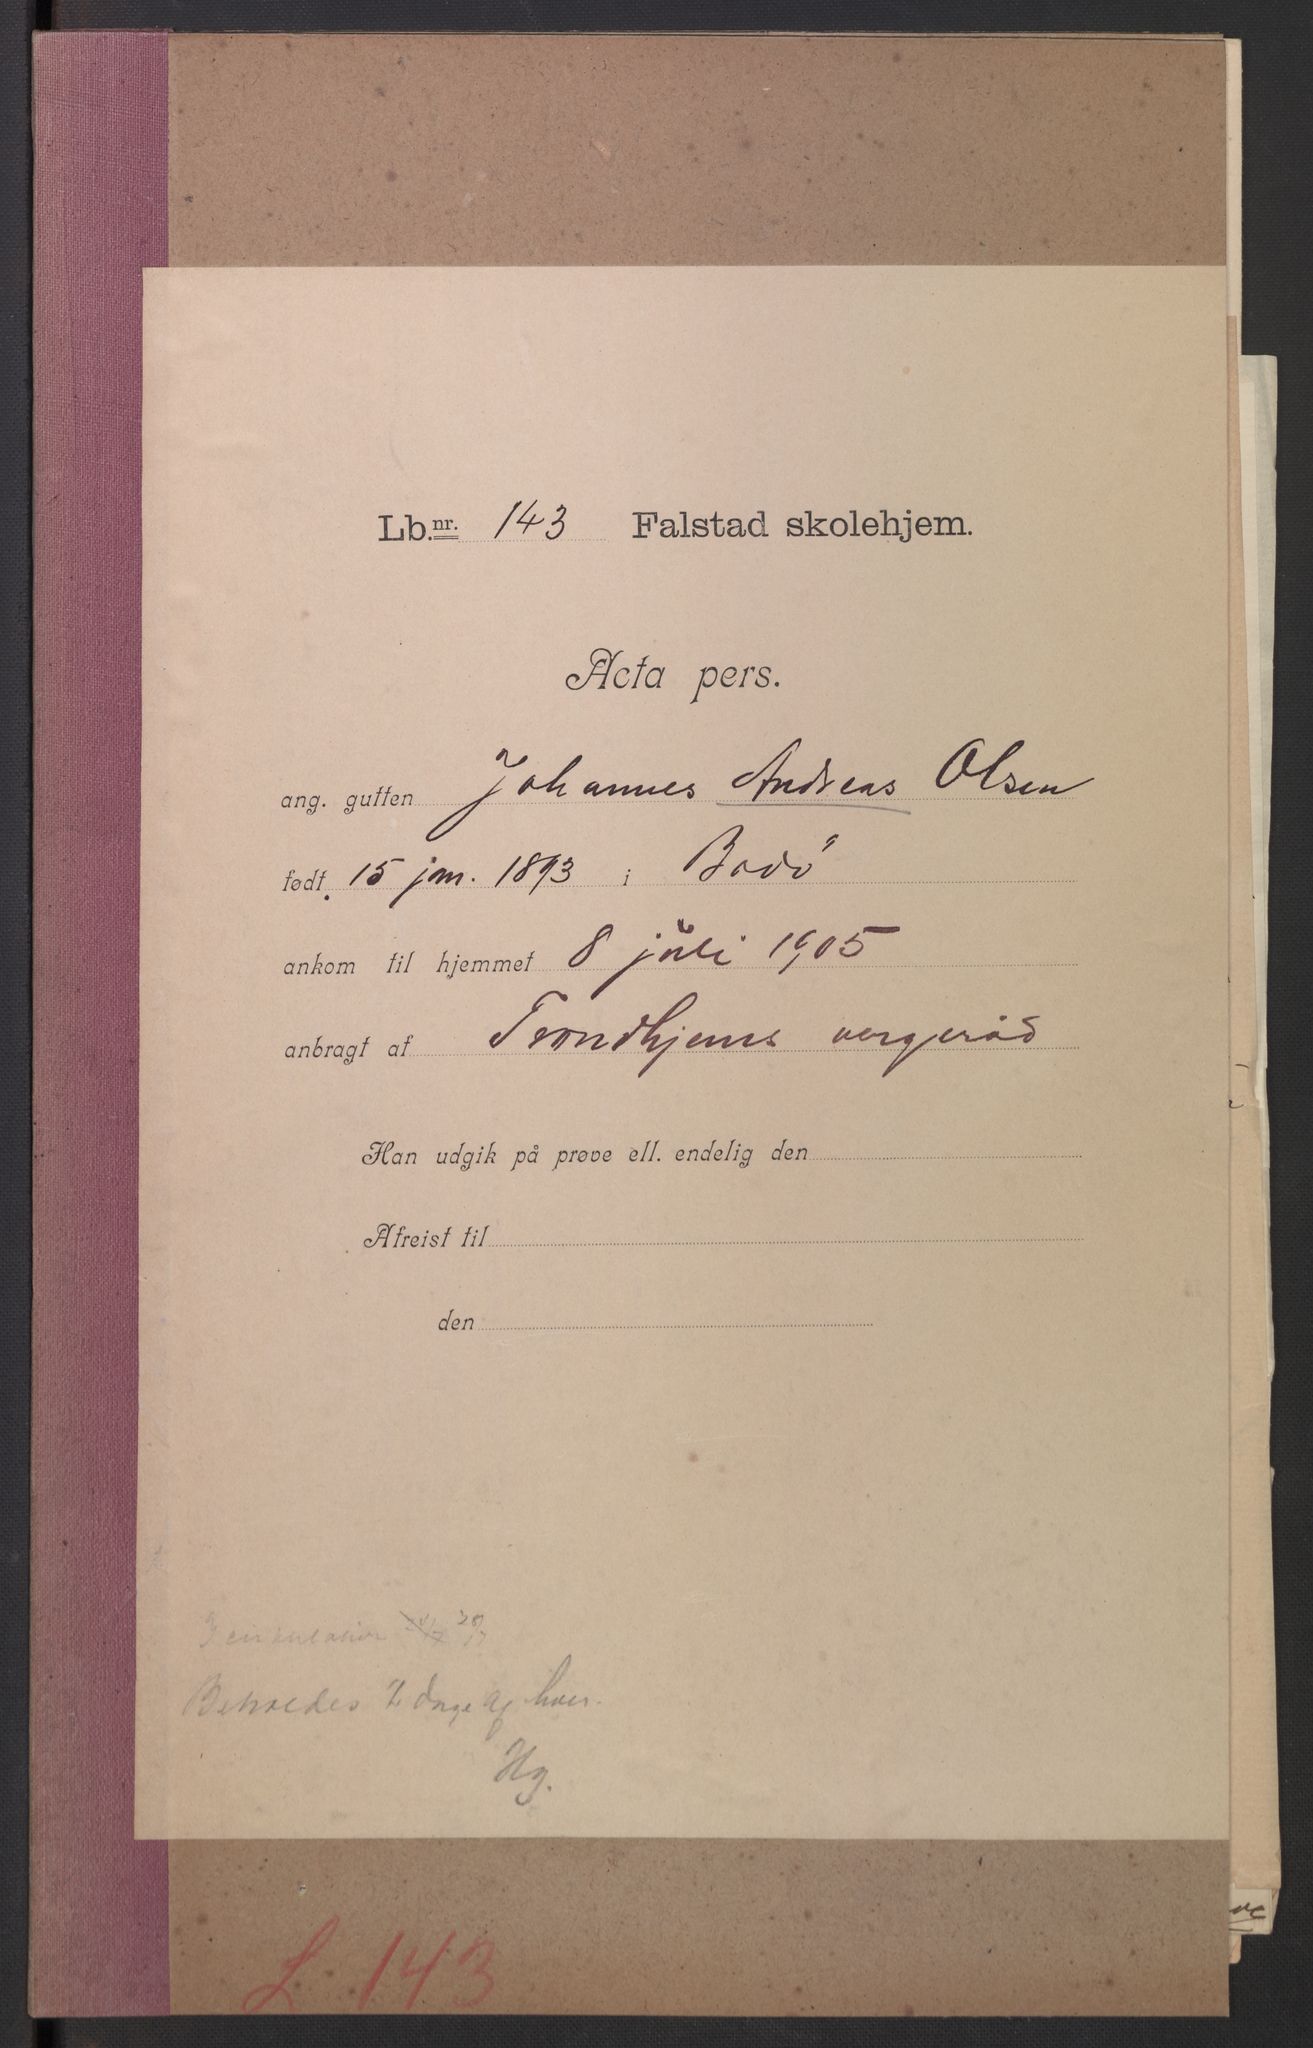 Lb.nr. 143 Falstad skolehjem.
Acta pers.
ang. gutten Johannes Andreas Olsen
født. 15 jan. 1893 i Bodö
ankom til hjemmet 8 juli 1905
anbragt af Trondhjems vergeråd
Han udgik på prøve ell. endelig den
Afreist til
den
I cirkulation
Beholdes 2 dage af hver.
Hg.
L 143